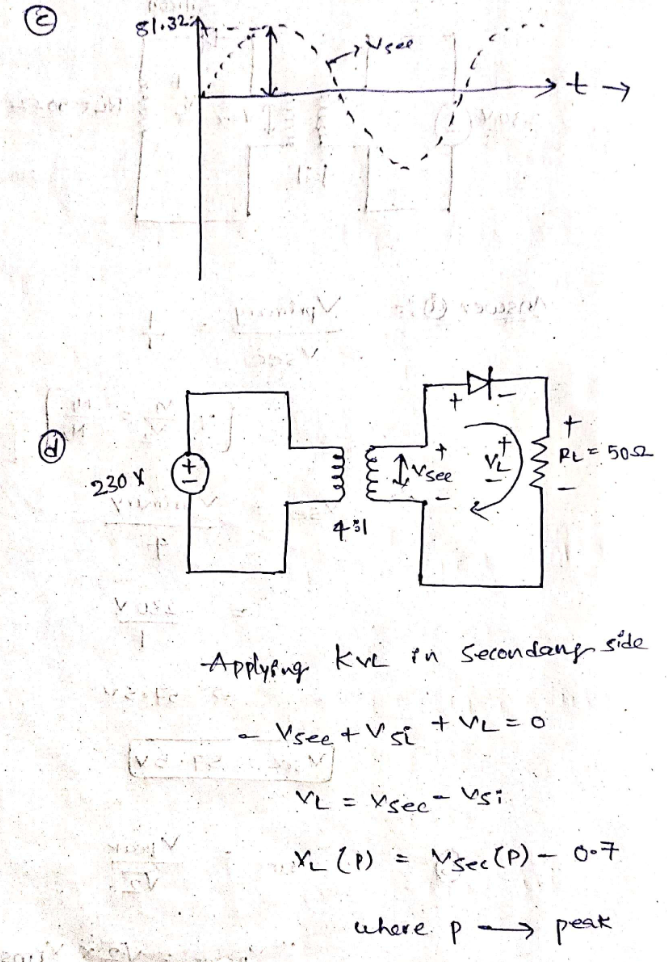 c
81.32
Vsec
t →
d
230 V
+
-
4:1
Vsec
+
-
+
-
+
VL
-
+
RL = 50Ω
-
Applying KVL in Secondary side
- Vsec + Vsi + VL = 0
VL = Vsec - Vsi
VL (P) = Vsec(P) - 0.7
where P → peak